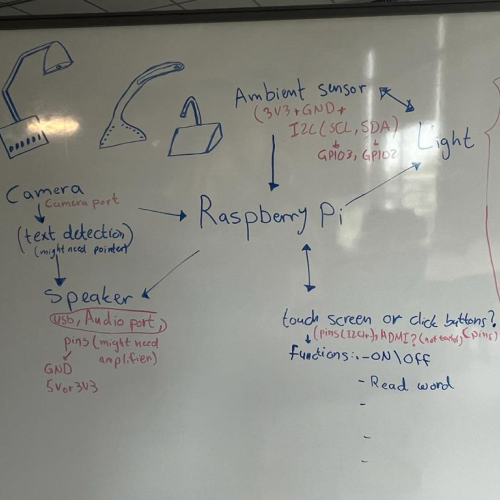 Ambient sensor
(3V3+GND+
I2C(SCL,SDA)
GPIO3, GPIO2
Light
Camera
Camera port
(text detection)
(might need pointer)
Raspberry Pi
Speaker
usb, Audio port,
pins (might need
amplifier)
GND
5V or 3V3
touch screen or click buttons?
(pins
(pins)
Functions:-ON\OFF
- Read word
-
-
-